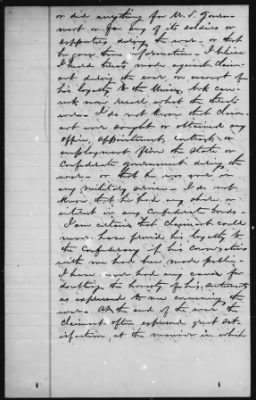 or did anything for U.S. Govern-
ment or for any of its soldiers or
supporters during the war, or that
he gave them information. I believe
I heard threats made against claim-
ant during the war, on account of
his loyalty to the Union, but can
not now recall what the threats
were. I do not know that claim-
ant ever sought or obtained any
office, appointment, contract or
employment from the State or
Confederate Government during the
war - or that he was ever in
any military service. I do not
know that he had any share or
interest in any Confederate bonds.
I am certain that claimant could
never have proved his loyalty to
the Confederacy if his conversations
with me had been made public.
I have never had any cause for
doubting the honesty of his sentiments
as expressed to me concerning the
war. At the end of the war the
claimant often expressed great sat-
isfaction, at the manner in which